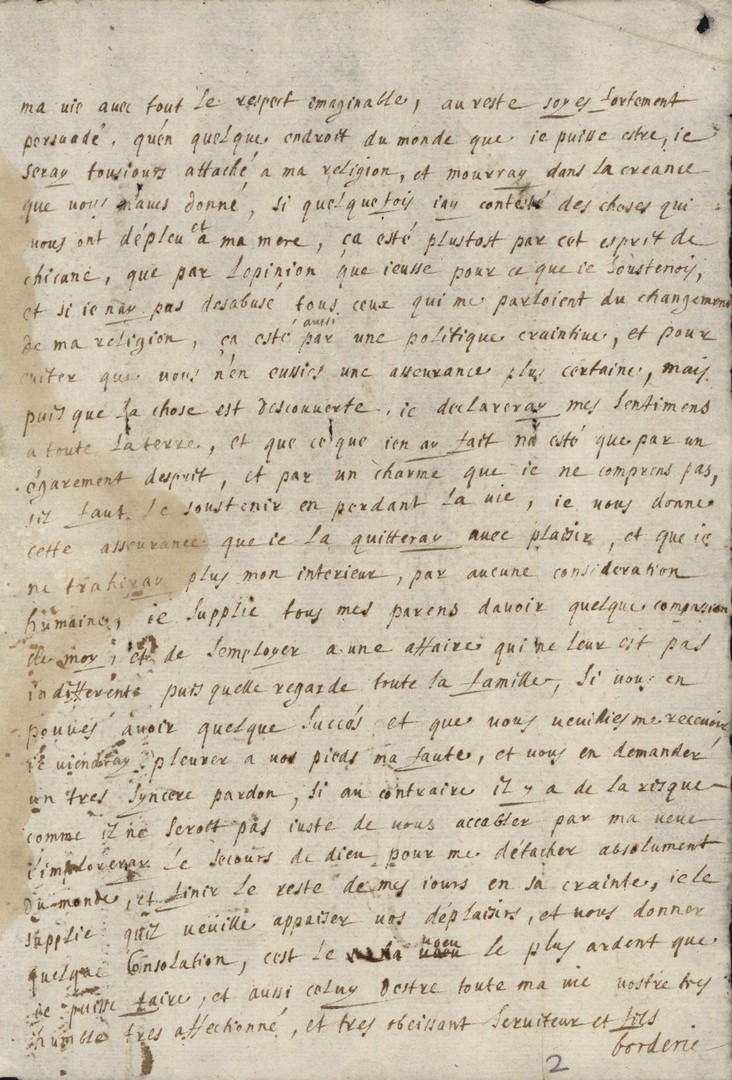 ma vie avec tout le respect imaginable, au reste soyes fortement
persuadé, qu'en quelque endroit du monde que ie puisse estre, ie
seray tousiours attaché a ma religion, et mourray dans la creance
que vous m'aues donné, si quelque fois iay contesté des choses qui
vous ont dépleu et a ma mere, ça esté plustost par cet esprit de
chicane, que par l'opinion que ieusse pour ce que ie soustenois,
et si ie nay pas desabusé tous ceux qui me parloient du changement
de ma religion, ça esté aussi par une politique craintiue, et pour
euiter que vous n'en eussies une asseurance plus certaine, mais
puis que la chose est descouuerte, ie declareray mes sentimens
a toute la terre, et que ce que ien ay fait na esté que par un
égarement desprit, et par un charme que ie ne comprens pas,
sil faut le soustenir en perdant la vie, ie vous donne
cette asseurance que ie la quitteray avec plaisir, et que ie
ne trahiray plus mon interieur, par aucune consideration
humaine, ie supplie tous mes parens dauoir quelque compassion
de moy, et de semployer a une affaire qui ne leur est pas
indifferente puis quelle regarde toute la famille, si vous en
pouués auoir quelque succés et que vous ueuilliés me receuoir
ie viendray pleurer a vos pieds ma faute, et vous en demander
un tres syncere pardon, si au contraire il y a de la risque
comme il ne seroit pas iuste de vous accabler par ma veue
i'imploreray le secours de dieu pour me détacher absolument
du monde, et finir le reste de mes iours en sa crainte, ie le
supplie qu'il ueuille appaiser vos déplaisirs, et vous donner
quelque consolation, cest le voeu le plus ardent que
ie puisse faire, et aussi celuy destre toute ma vie vostre tres
humble tres affectionné, et tres obeissant seruiteur et fils
borderie
2